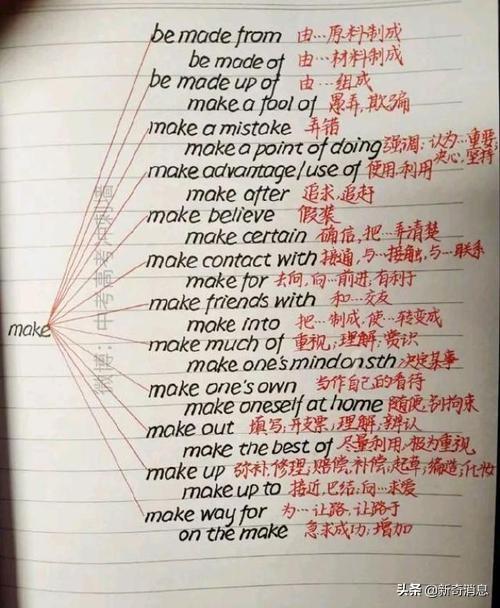 be made from 由…原料制成
be made of 由…材料制成
be made up of 由…组成
make a fool of 愚弄,欺骗
make a mistake 弄错
make a point of doing 强调;认为…重要;决心,坚持
make advantage/use of 使用,利用
make after 追求,追赶
make believe 假装
make certain 确信,把…弄清楚
make contact with 接通,与…接触,与…联系
make for 去向,向…前进,有利于
make friends with 和…交友
make into 把…制成,使…转变成
make
make much of 重视,理解,赏识
make one's mind on sth 决定某事
make one's own 当作自己的看待
make oneself at home 随便,别拘束
make out 填写,开支票,理解,辨认
make the best of 尽量利用,极为重视
make up 弥补,修理,赔偿,补偿,起草,编造,化妆
make up to 接近,巴结;向…求爱
make way for 为…让路,让路于
on the make 急求成功,增加
微博:中考高考
头条 @新奇消息